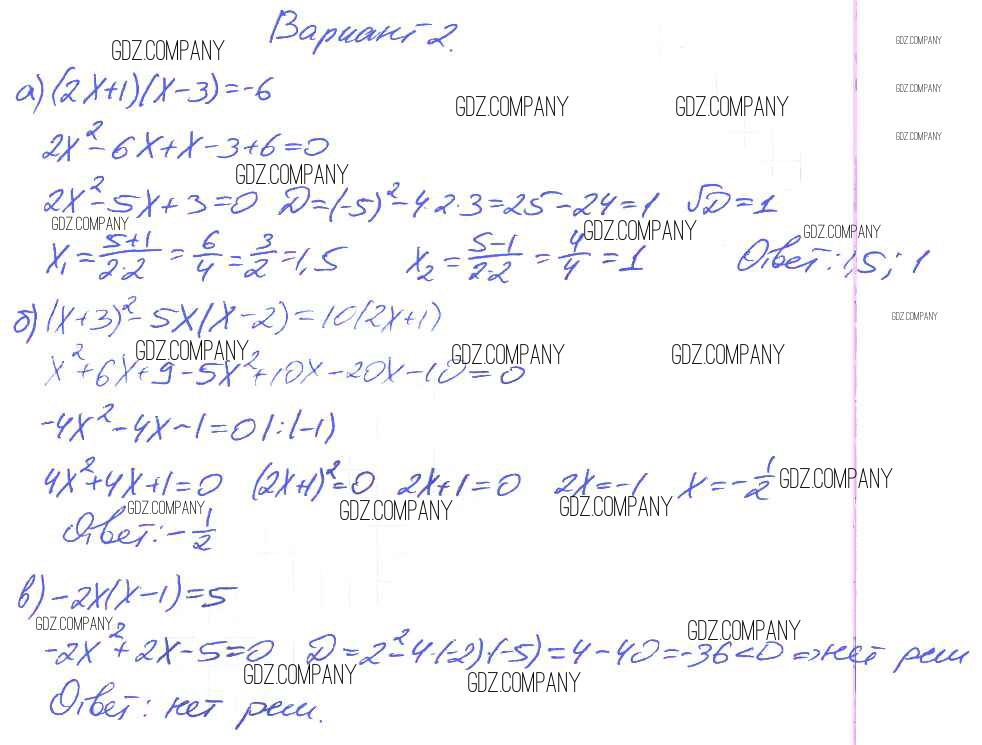 Вариант 2.
GDZ.COMPANY
GDZ.COMPANY
а) (2x+1)(x-3)=-6
GDZ.COMPANY
GDZ.COMPANY
GDZ.COMPANY
GDZ.COMPANY
2x²-6x+x-3+6=0
GDZ.COMPANY
2x²-5x+3=0 D=(-5)²-4·2·3=25-24=1 √D=1
GDZ.COMPANY
GDZ.COMPANY
GDZ.COMPANY
x₁=(5+1)/(2·2)=6/4=3/2=1,5 x₂=(5-1)/(2·2)=4/4=1 Ответ: 1,5; 1
б) (x+3)²-5x(x-2)=10(2x+1)
GDZ.COMPANY
GDZ.COMPANY
GDZ.COMPANY
GDZ.COMPANY
x²+6x+9-5x²+10x-20x-10=0
-4x²-4x-1=0 |:(-1)
4x²+4x+1=0 (2x+1)²=0 2x+1=0 2x=-1 x=-1/2
GDZ.COMPANY
GDZ.COMPANY
GDZ.COMPANY
GDZ.COMPANY
Ответ: -1/2
в) -2x(x-1)=5
GDZ.COMPANY
GDZ.COMPANY
-2x²+2x-5=0 D=2²-4·(-2)·(-5)=4-40=-36<0 ⇒ нет реш
GDZ.COMPANY
GDZ.COMPANY
Ответ: нет реш.